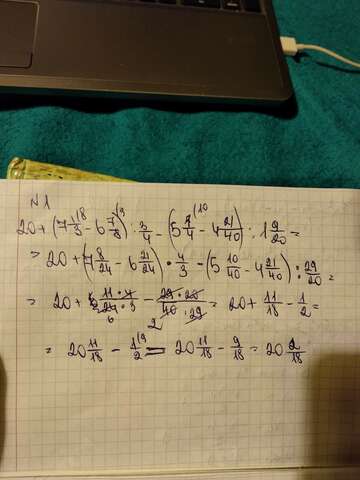 N1
20+(7 1/3^(8 - 6 7/8^(3) : 3/4 - (5 1/4^(10 - 4 21/40) : 1 9/20 =
= 20 + (7 8/24 - 6 21/24) · 4/3 - (5 10/40 - 4 21/40) : 29/20 =
= 20 + 11·4/24·3 6 - 29·20/40·29 2 = 20 + 11/18 - 1/2 =
= 20 11/18 - 1/2^(9 = 20 11/18 - 9/18 = 20 2/18